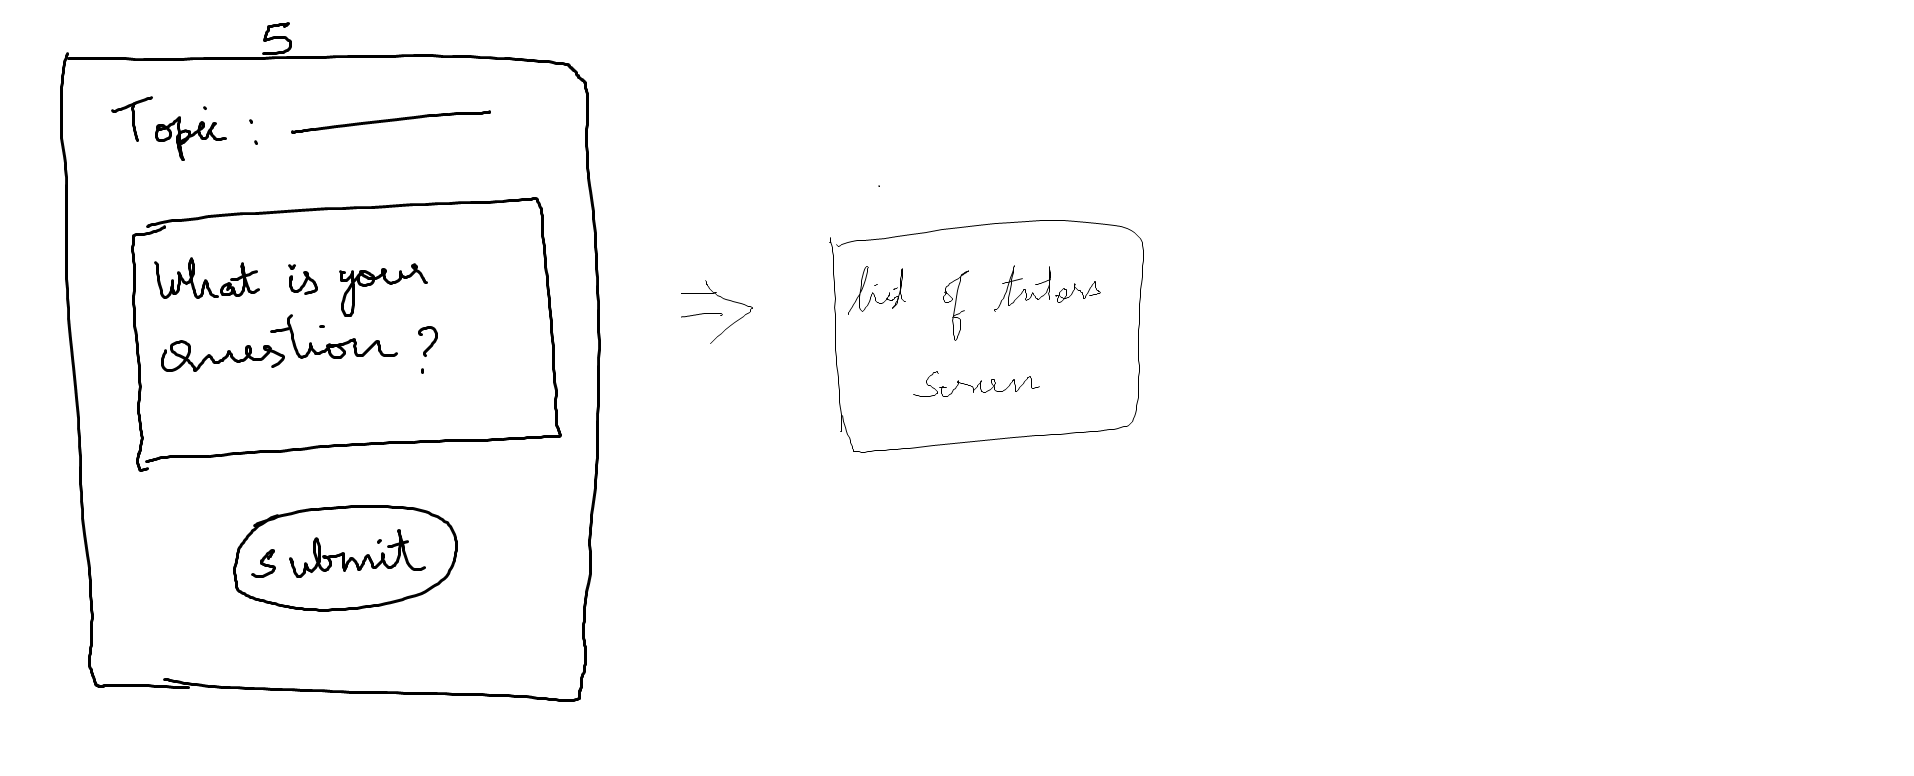 5
Topic : 
What is your
question ?
submit
list of tutors
screen